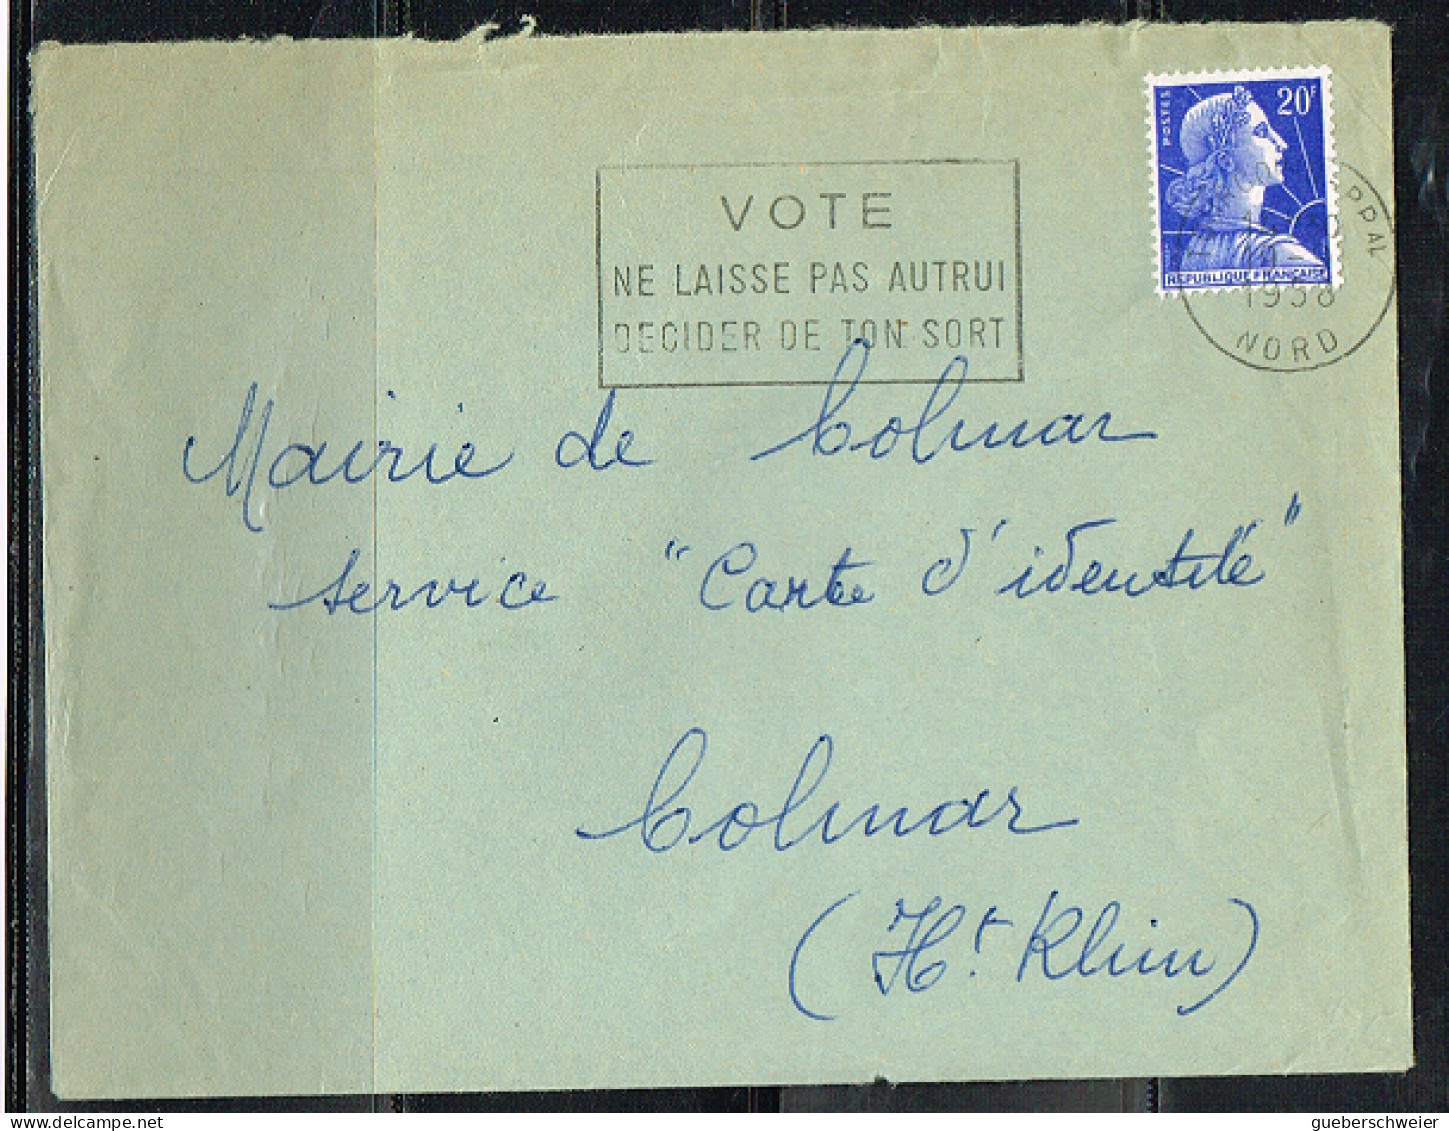 POSTES
20F
REPUBLIQUE FRANÇAISE
PPAL
1958
NORD
VOTE
NE LAISSE PAS AUTRUI
DECIDER DE TON SORT
Mairie de Colmar
service "Carte d'identité"
Colmar
(Ht Rhin)
gueberschweier